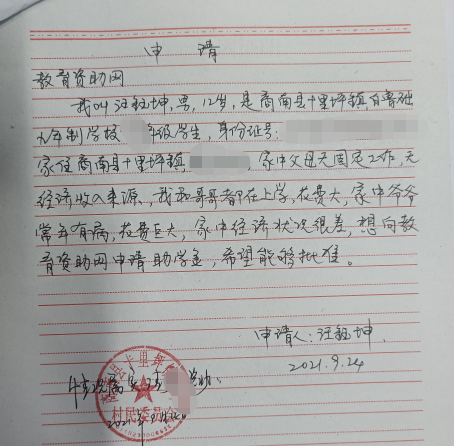 申 请
教育资助网
我叫汪钰坤,男,12岁,是商南县十里坪镇白鲁础
九年制学校 年级学生,身份证号:
家住商南县十里坪镇, ,家中父母无固定工作,无
经济收入来源,我和哥哥都在上学,花费大,家中爷爷
常年有病,花费巨大,家中经济状况很差,想向教
育资助网申请助学金,希望能够批准。
申请人:汪钰坤
2021.9.24
情况属实
村民委员会